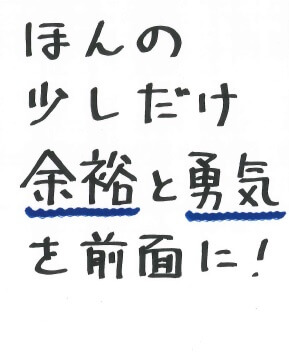 ほんの
少しだけ
余裕と勇気
を前面に!